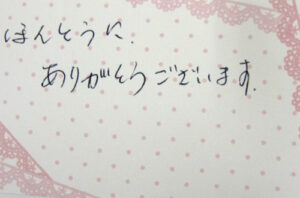 ほんとうに.
ありがとうございます.